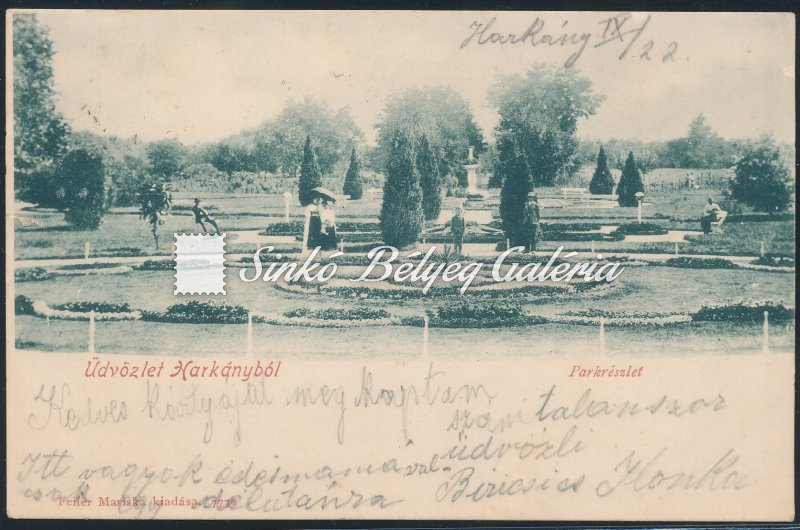 Harkány IX/22
Sinkó Bélyeg Galéria
Üdvözlet Harkányból
Parkrészlet
Kedves kártyáját meg kaptam
szám talanszor
üdvözli
Itt vagyok édesmamával
csak egy délutánra
Ilonka
Feiler Mariska kiadása. 7779